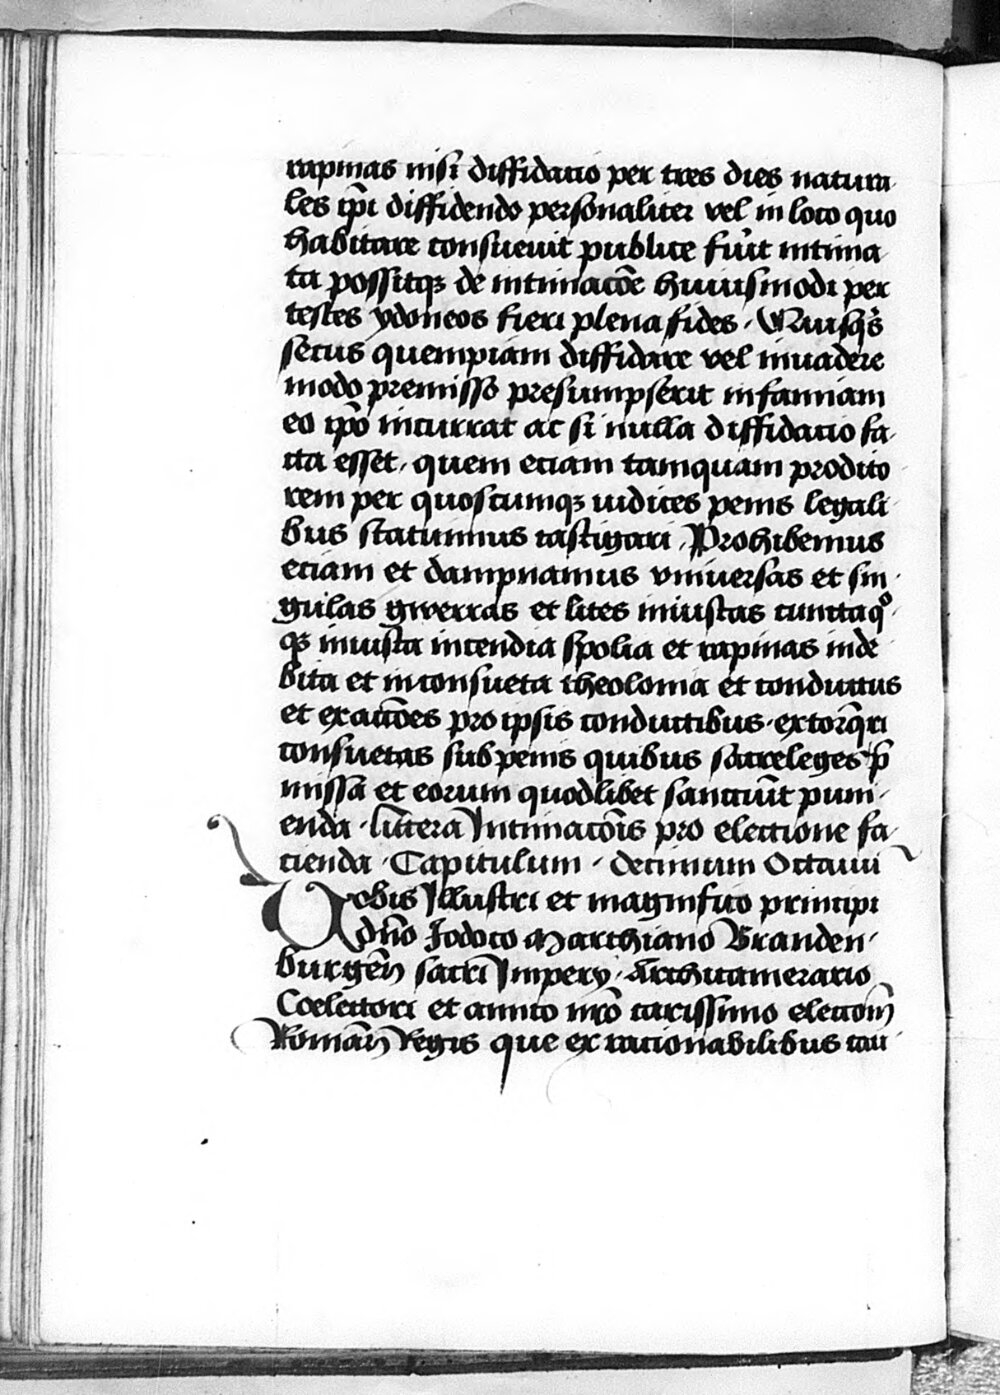 rapinas nisi diffidacio per tres dies natura
les ip̃i diffidendo personaliter vel in loco quo
habitare consueuit publice fu͛it intima
ta possitqꝫ de intimacõe huiusmodi per
testes ydoneos fieri plena fides. Quisq̃s
secus quempiam diffidare vel inuadere
modo premisso presumpserit infamiam
eo ip̃o incurrat ac si nulla diffidacio fa
cta esset, quem eciam tamquam prodito
rem per quoscumqꝫ iudices penis legali
bus statuimus castigari, Prohibemus
eciam et dampnamus vniuersas et sin
gulas gwerras et lites iniustas cunctaqᵒ
qꝫ iniusta incendia spolia et rapinas inde
bita et inconsueta theolonia et conductus
et exaccões pro ipsis conductibus extorq̃ri
consuetas sub penis quibus sacreleges p̃
missa et eorum quodlibet sanciu͛it puni
enda. Littera Intimacõis pro electione fa
cienda. Capitulum. decimum Octauū
Vobis Illustri et magnifico principi
dño Jodoco Marchiano Branden
burgeñ sacri Impery. Archicamerario
Coelectori et amico nr̃o carissimo electoñ
Romañ Regis que ex racionabilibus cau